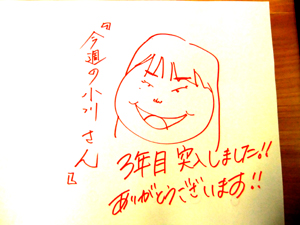 『今週の小川さん』
3年目突入しました!!
ありがとうございます!!